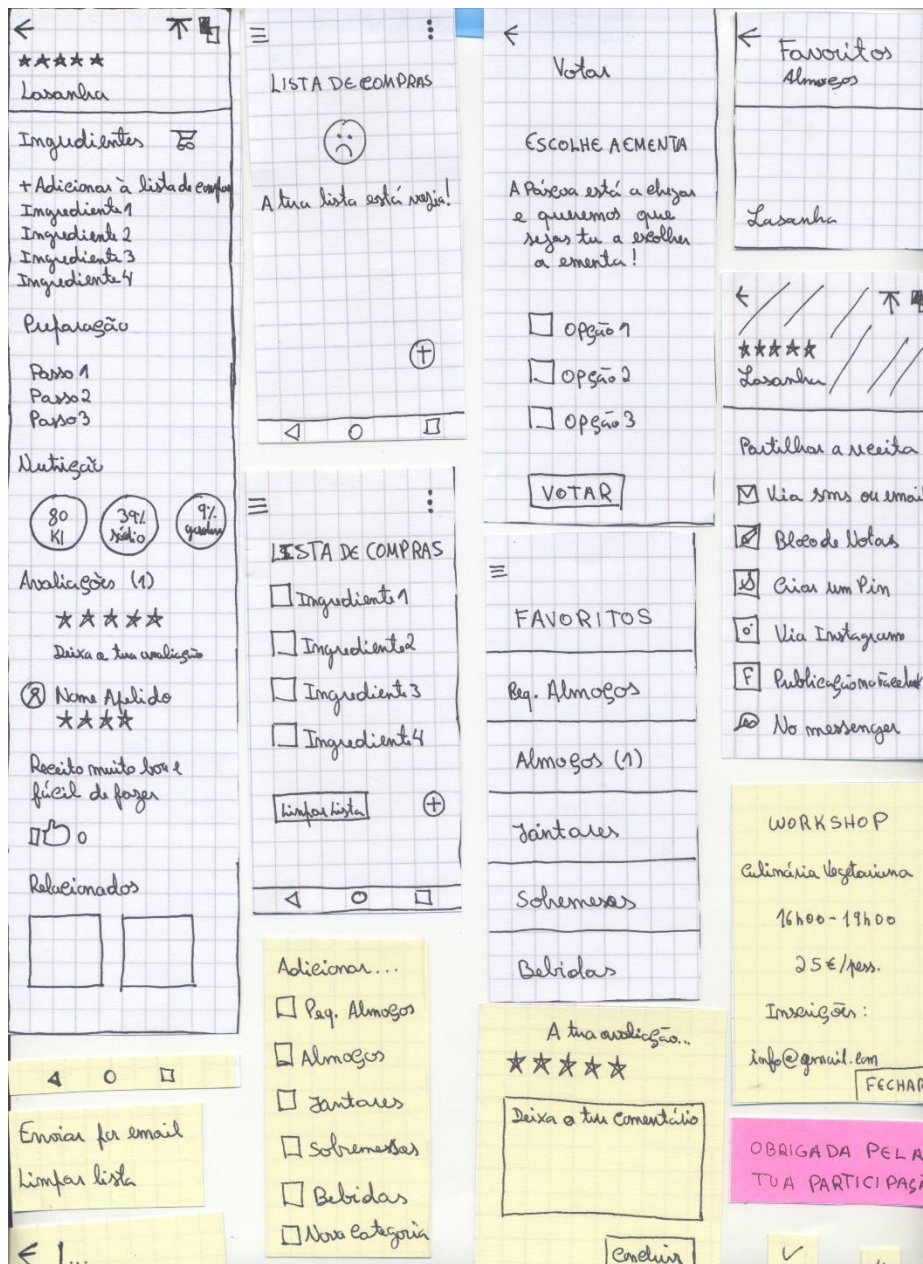 Lasanha
Ingredientes
+ Adicionar à lista de compras
Ingrediente 1
Ingrediente 2
Ingrediente 3
Ingrediente 4
Preparação
Passo 1
Passo 2
Passo 3
Nutrição
80
Kl
39%
sódio
9%
gordura
Avaliações (1)
Deixa a tua avaliação
Nome Apelido
Receita muito boa e
fácil de fazer
0
Relacionados
Enviar por email
Limpar lista
LISTA DE COMPRAS
A tua lista está vazia!
LISTA DE COMPRAS
Ingrediente 1
Ingrediente 2
Ingrediente 3
Ingrediente 4
Limpar Lista
Adicionar...
Peq. Almoços
Almoços
Jantares
Sobremesas
Bebidas
Nova Categoria
Votar
ESCOLHE A EMENTA
A Páscoa está a chegar
e queremos que
sejas tu a escolher
a ementa!
Opção 1
Opção 2
Opção 3
VOTAR
FAVORITOS
Peq. Almoços
Almoços (1)
Jantares
Sobremesas
Bebidas
A tua avaliação...
Deixa o teu comentário
Concluir
Favoritos
Almoços
Lasanha
Lasanha
Partilhar a receita
Via sms ou email
Bloco de Notas
Criar um Pin
Via Instagram
F Publicação no Facebook
No messenger
WORKSHOP
Culinária Vegetariana
16h00 - 19h00
25€/pess.
Inscrições:
info@gmail.com
FECHAR
OBRIGADA PELA
TUA PARTICIPAÇÃ